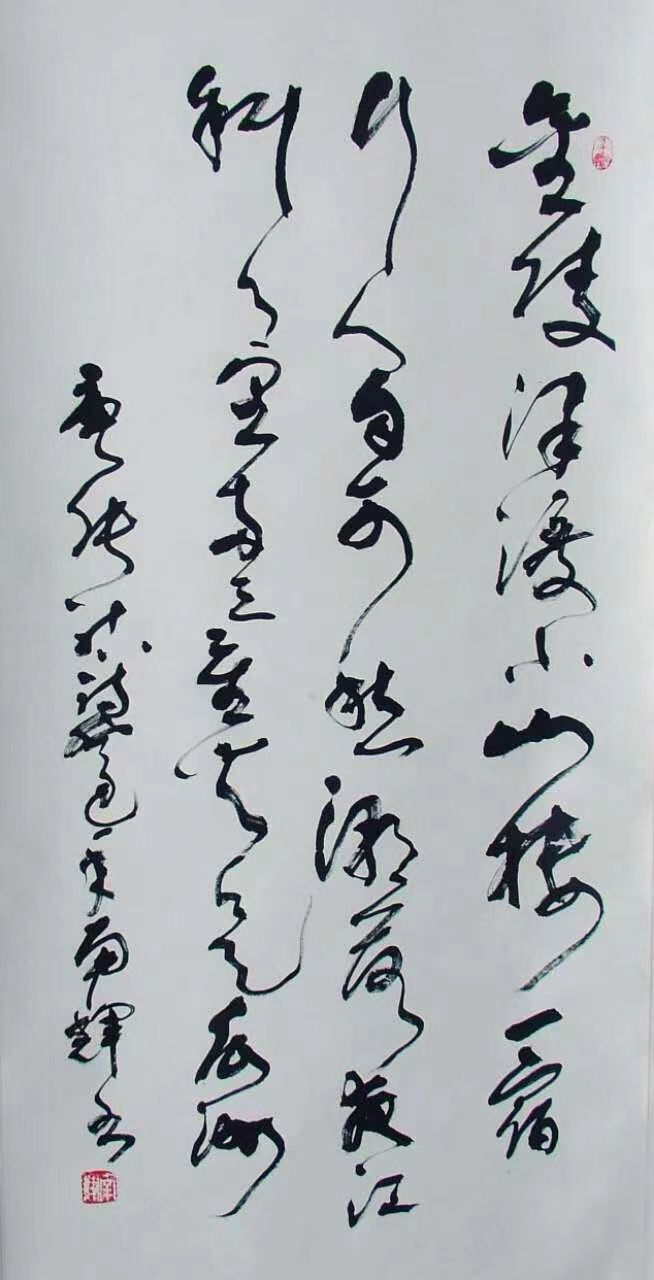 金陵津渡小山樓一宿
行人自可愁潮落夜江
斜月里両三星火是瓜洲
唐張祜詩南輝書